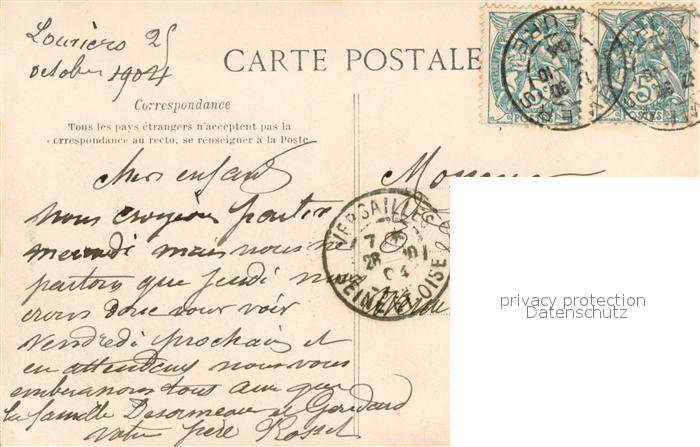 Louviers 25
october 1904
CARTE POSTALE
Correspondance
Tous les pays étrangers n'acceptent pas la
correspondance au recto, se renseigner à la Poste
chers enfants
nous croyions partir
mercredi mais nous ne
partons que jeudi nous
irons donc vous voir
Vendredi prochain et
en attendant nous vous
embrassons tous ainsi que
la famille Desormeaux et Gondard
votre père Rosset
Monsieur
VERSAILLES
7
26
04
SEINE ET OISE
EURE
5c
POSTES
POSTES
privacy protection
Datenschutz